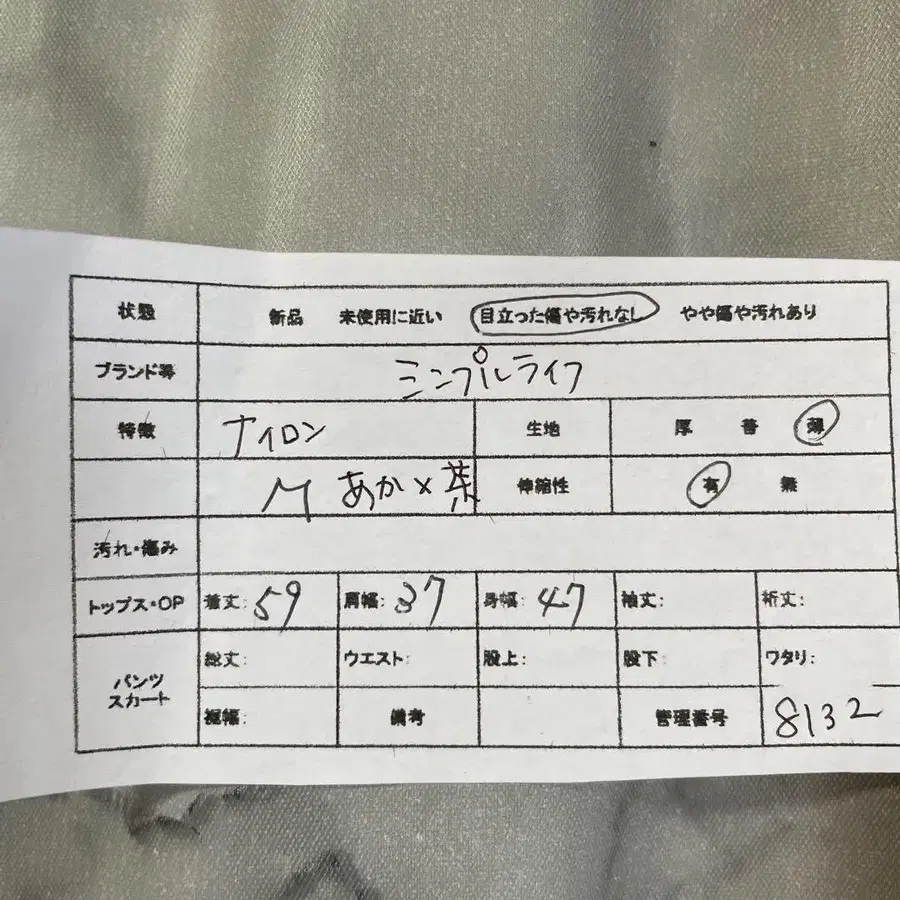 状態 新品 未使用に近い 目立った傷や汚れなし やや傷や汚れあり
ブランド等 シンプルライフ
特徴 ナイロン 生地 厚 普 薄
M あか×茶 伸縮性 有 無
汚れ・傷み
トップス・OP 着丈: 59 肩幅: 37 身幅: 47 袖丈: 裄丈:
パンツ スカート 総丈: ウエスト: 股上: 股下: ワタリ:
裾幅: 備考 管理番号 8132